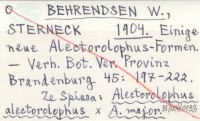 O BEHRENDSEN W.,
STERNECK 1904. Einige
neue Alectorolophus-Formen.
— Verh. Bot. Ver. Provinz
Brandenburg 45: 197-222.
Ze spisou: Alectorolophus
alectorolophus x A. major.